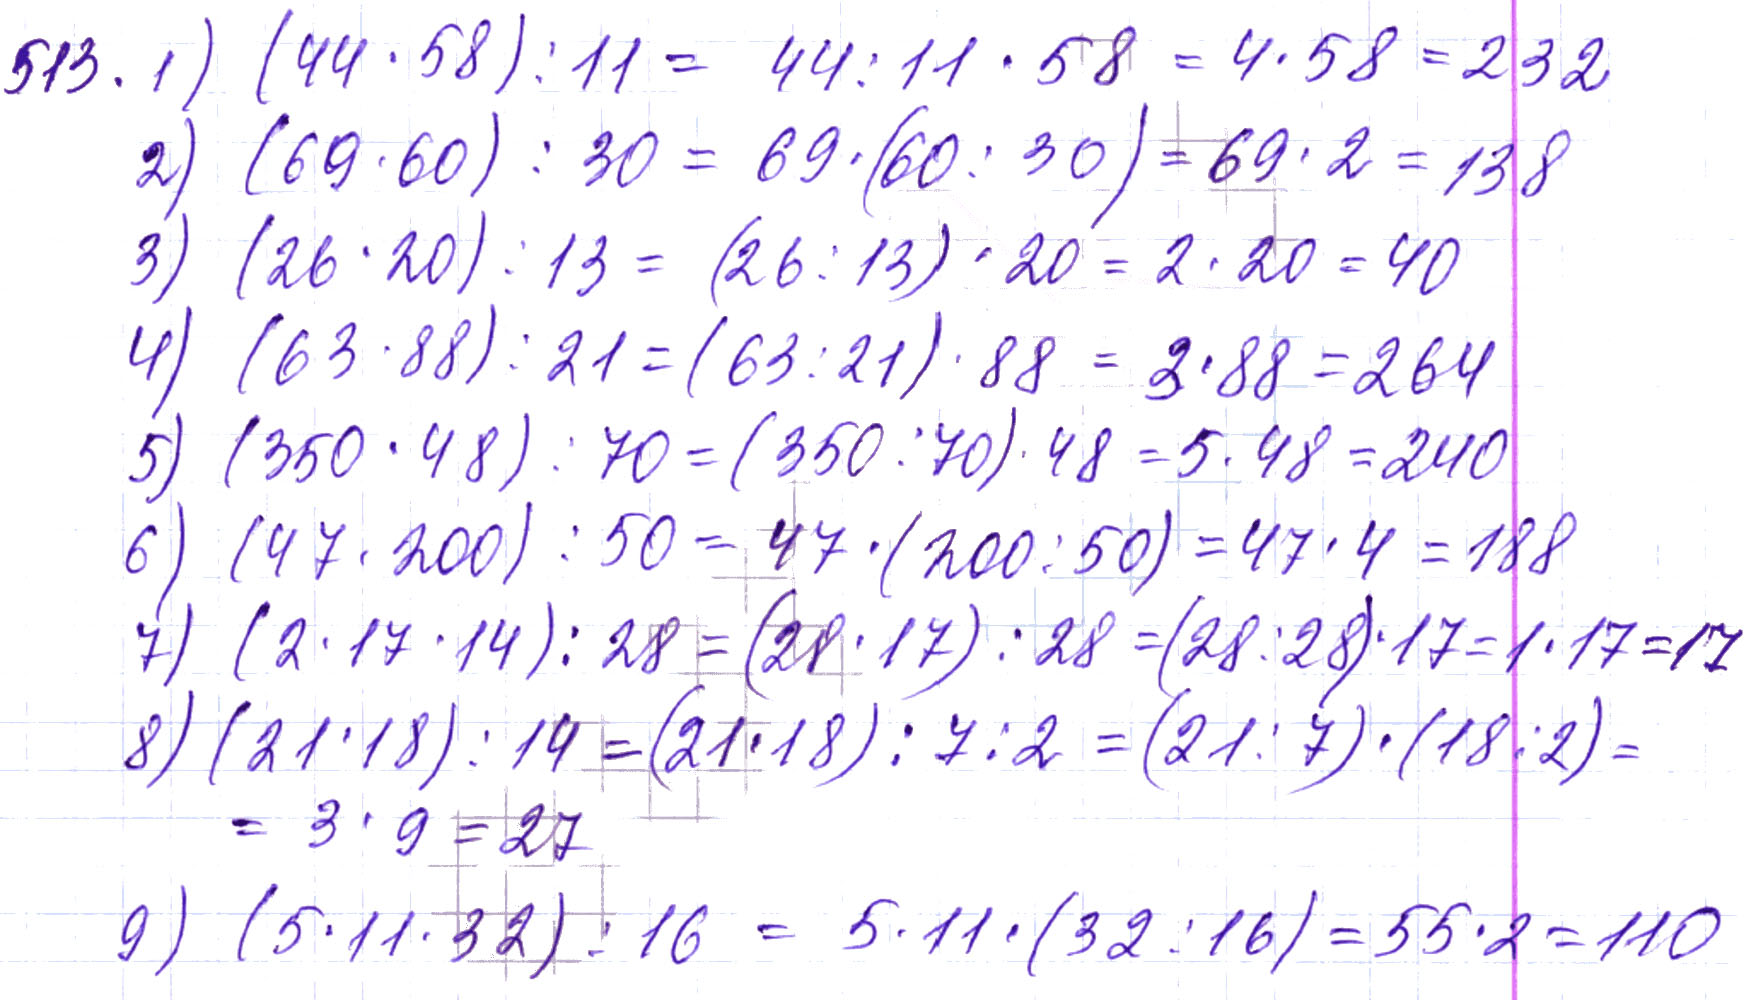 513. 1) (44 · 58) : 11 = 44 : 11 · 58 = 4 · 58 = 232
2) (69 · 60) : 30 = 69 · (60 : 30) = 69 · 2 = 138
3) (26 · 20) : 13 = (26 : 13) · 20 = 2 · 20 = 40
4) (63 · 88) : 21 = (63 : 21) · 88 = 3 · 88 = 264
5) (350 · 48) : 70 = (350 : 70) · 48 = 5 · 48 = 240
6) (47 · 200) : 50 = 47 · (200 : 50) = 47 · 4 = 188
7) (2 · 17 · 14) : 28 = (28 · 17) : 28 = (28 : 28) · 17 = 1 · 17 = 17
8) (21 · 18) : 14 = (21 · 18) : 7 : 2 = (21 : 7) · (18 : 2) =
= 3 · 9 = 27
9) (5 · 11 · 32) : 16 = 5 · 11 · (32 : 16) = 55 · 2 = 110